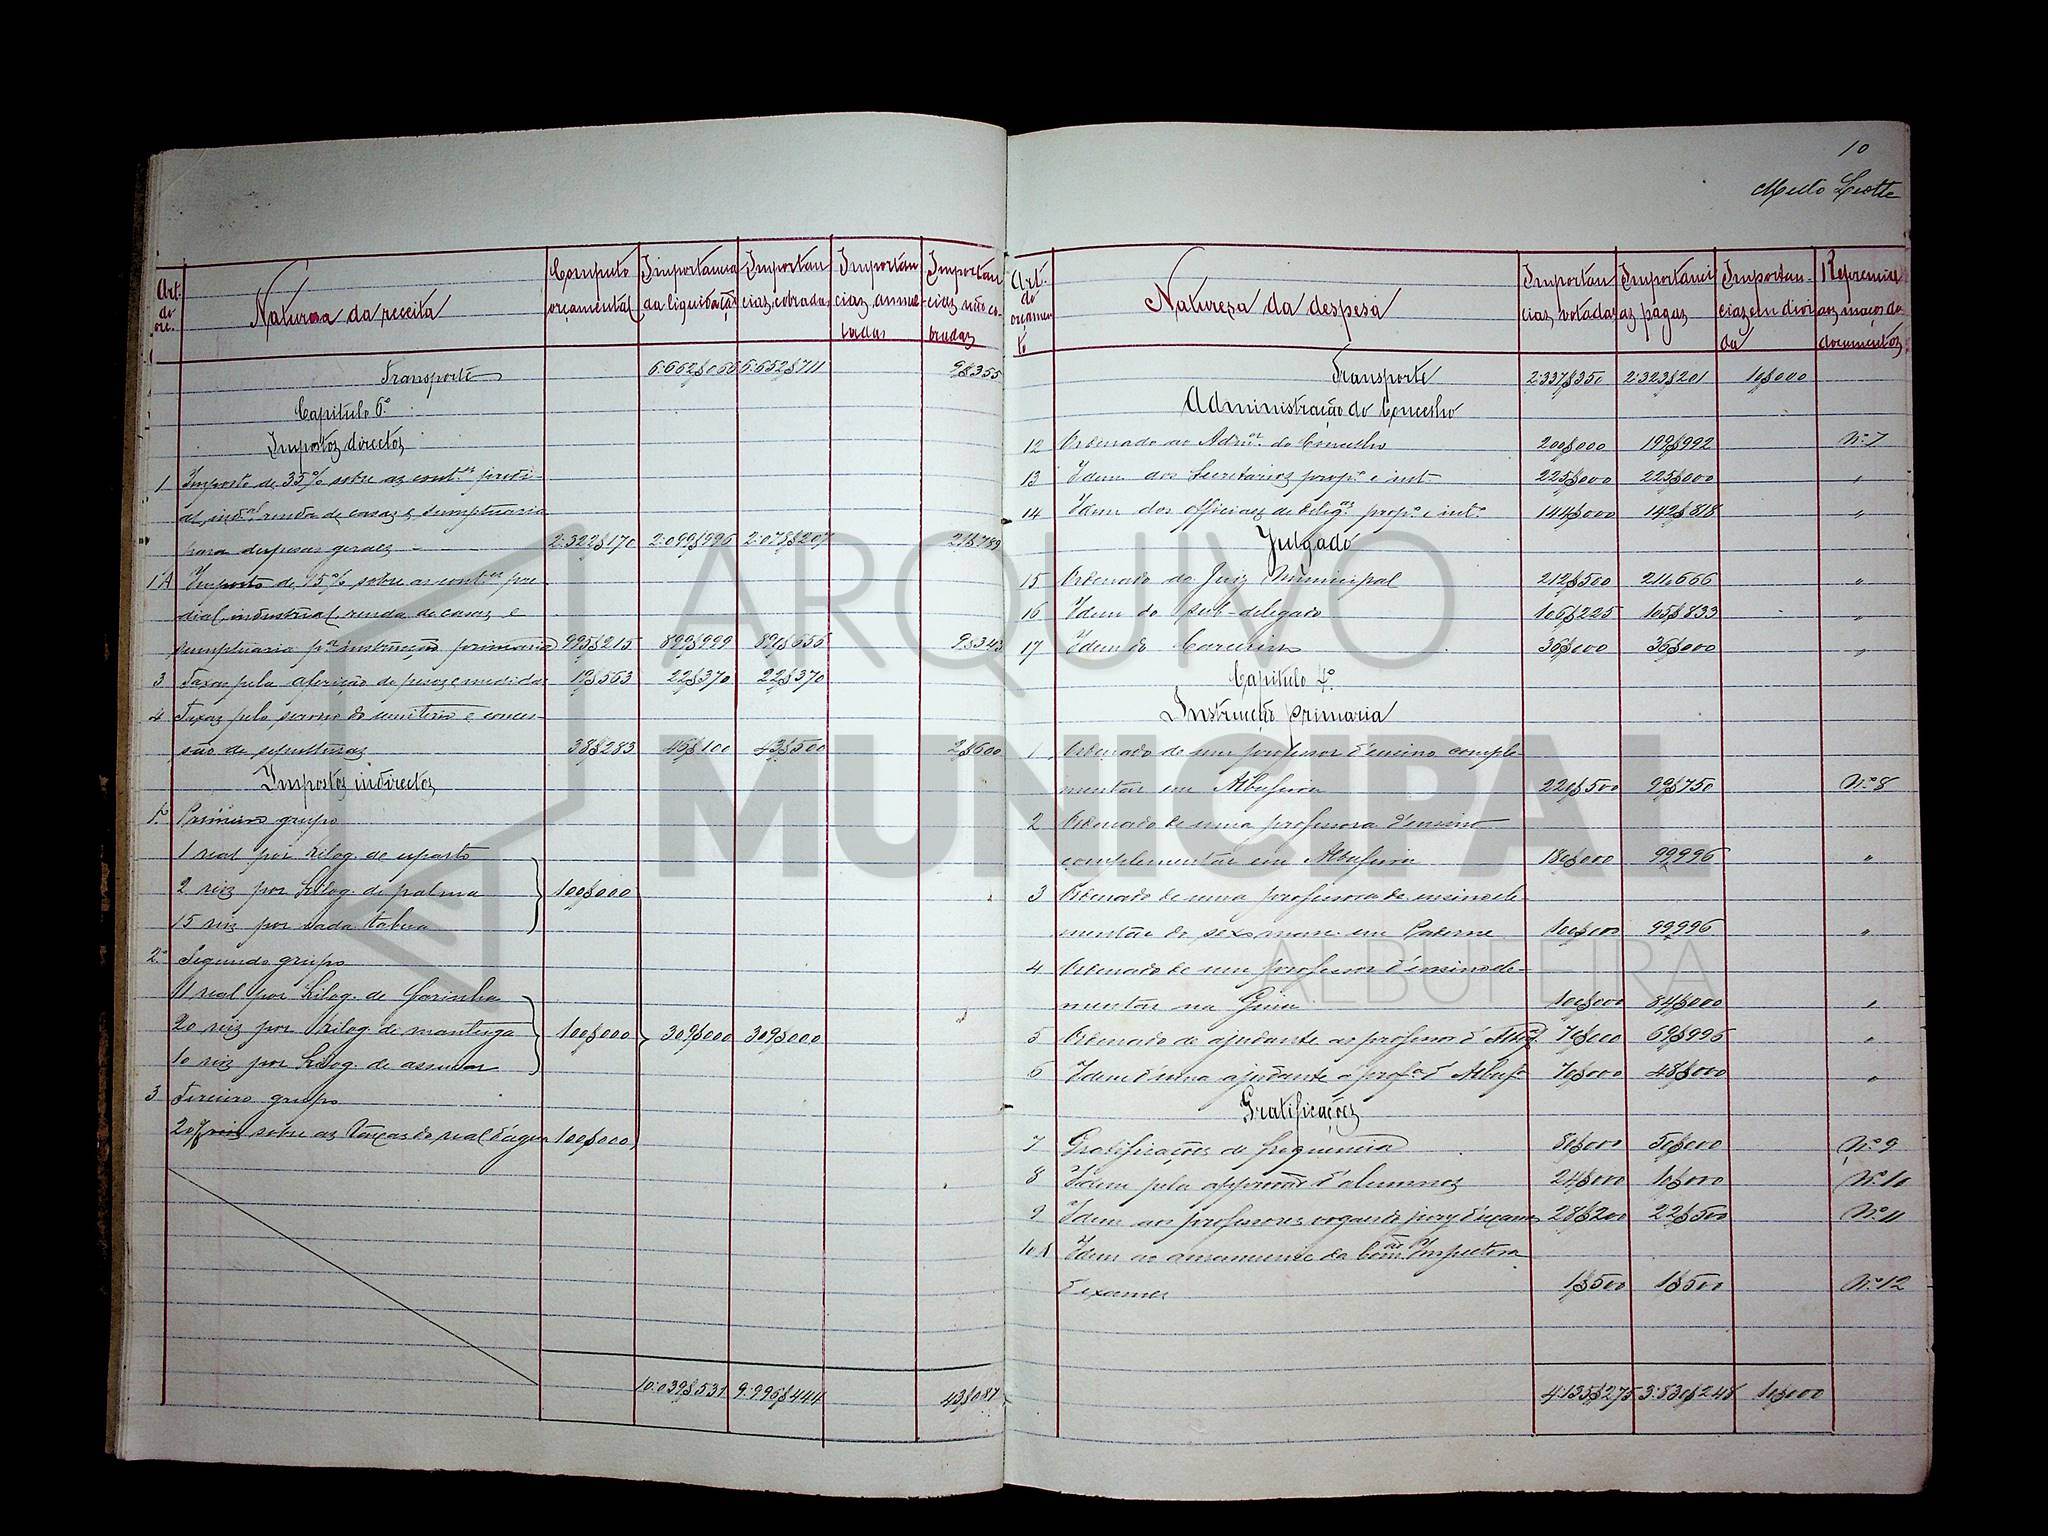 Art. do orc.
Natureza da receita
Computo orçamental
Importancia da liquidação
Importancias cobradas
Importancias annulladas
Importancias não cobradas
Transporte 6:662$066 6:652$711 9$355
Capitulo 6º
Impostos directos
1 Imposto de 35% sobre as cont.es predi-
al, ind.al renda de casas e sumptuaria
para despesas geraes 2:322$170 2:099$996 2:078$207 21$789
1A Imposto de 15% sobre as cont.es pre-
dial, industrial, renda de casas e
sumptuaria p.a instrucção primaria 995$215 899$999 890$656 9$343
3 Taxas pela aferição de pesos e medidas 12$563 22$370 22$370
4 Taxas pelo serviço do cemiterio e conces-
são de sepulturas 38$283 46$100 43$500 2$600
Impostos indirectos
1º Primeiro grupo
1 real por kilog. de esparto
2 reis por kilog. de palma 100$000
15 reis por cada
2º Segundo grupo
1 real por kilog. de farinha
20 reis por kilog. de manteiga 100$000 309$000 309$000
10 reis por kilog. de assucar
3 Terceiro grupo
20% sobre as taxas do real d'agua 100$000
10:039$531 9:996$444 43$087
10
Mello Leotte
Art. do orçamento
Natureza da despesa
Importancias votadas
Importancias pagas
Importancias em divida
Referencia aos maços de documentos
Transporte 2:337$350 2:323$201 10$000
Administração do Concelho
12 Ordenado ao Adm.or do Concelho 200$000 199$992 Nº 7
13 Idem dos Secretarios prop.o e int. 225$000 225$000 "
14 Idem dos officiaes de dilig.as prop.o e int.o 144$000 142$818 "
Julgado
15 Ordenado do Juiz Municipal 212$500 211,666 "
16 Idem do sub-delegado 106$225 105$833 "
17 Idem do Carcereiro 36$000 36$000 "
Capitulo 4º
Instrucção primaria
1 Ordenado de um professor d'ensino comple-
mentar em Albufeira 220$500 99$750 Nº 8
2 Ordenado de uma professora d'ensino
complementar em Albufeira 180$000 99,996 "
3 Ordenado de uma professora de ensino ele-
mentar do sexo masc. em Paderne 100$000 99,996 "
4 Ordenado de um professor d'ensino ele-
mentar na Guia 100$000 84$000 "
5 Ordenado de ajudante ao professor d'Albufª 70$000 69$996 "
6 Idem d'uma ajudante á prof.a d'Albuf.a 70$000 48$000 "
Gratificações
7 Gratificações de frequencia 80$000 50$000 Nº 9
8 Idem pela approvação d'alumnos 24$000 10$000 Nº 10
9 Idem aos professores vogaes do jury d'exames 28$200 22$500 Nº 11
10A Idem ao amanuense da Com.ão Inspectora
d'exames 1$500 1$500 Nº 12
4:135$275 3:830$248 10$000
ARQUIVO
MUNICIPAL
ALBUFEIRA